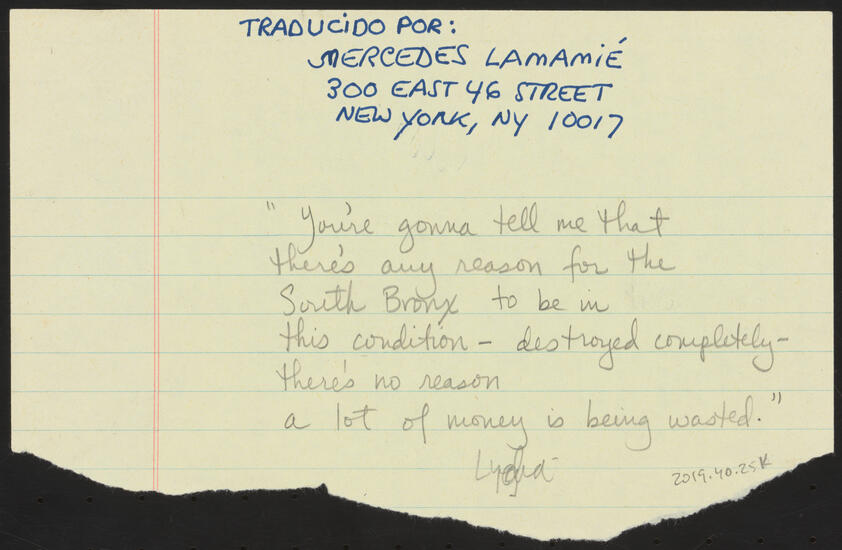 TRADUCIDO POR:
MERCEDES LAMAMIÉ
300 EAST 46 STREET
NEW YORK, NY 10017
"You're gonna tell me that
there's any reason for the
South Bronx to be in
this condition – destroyed completely –
there's no reason
a lot of money is being wasted."
Lydia
2019.40.25K